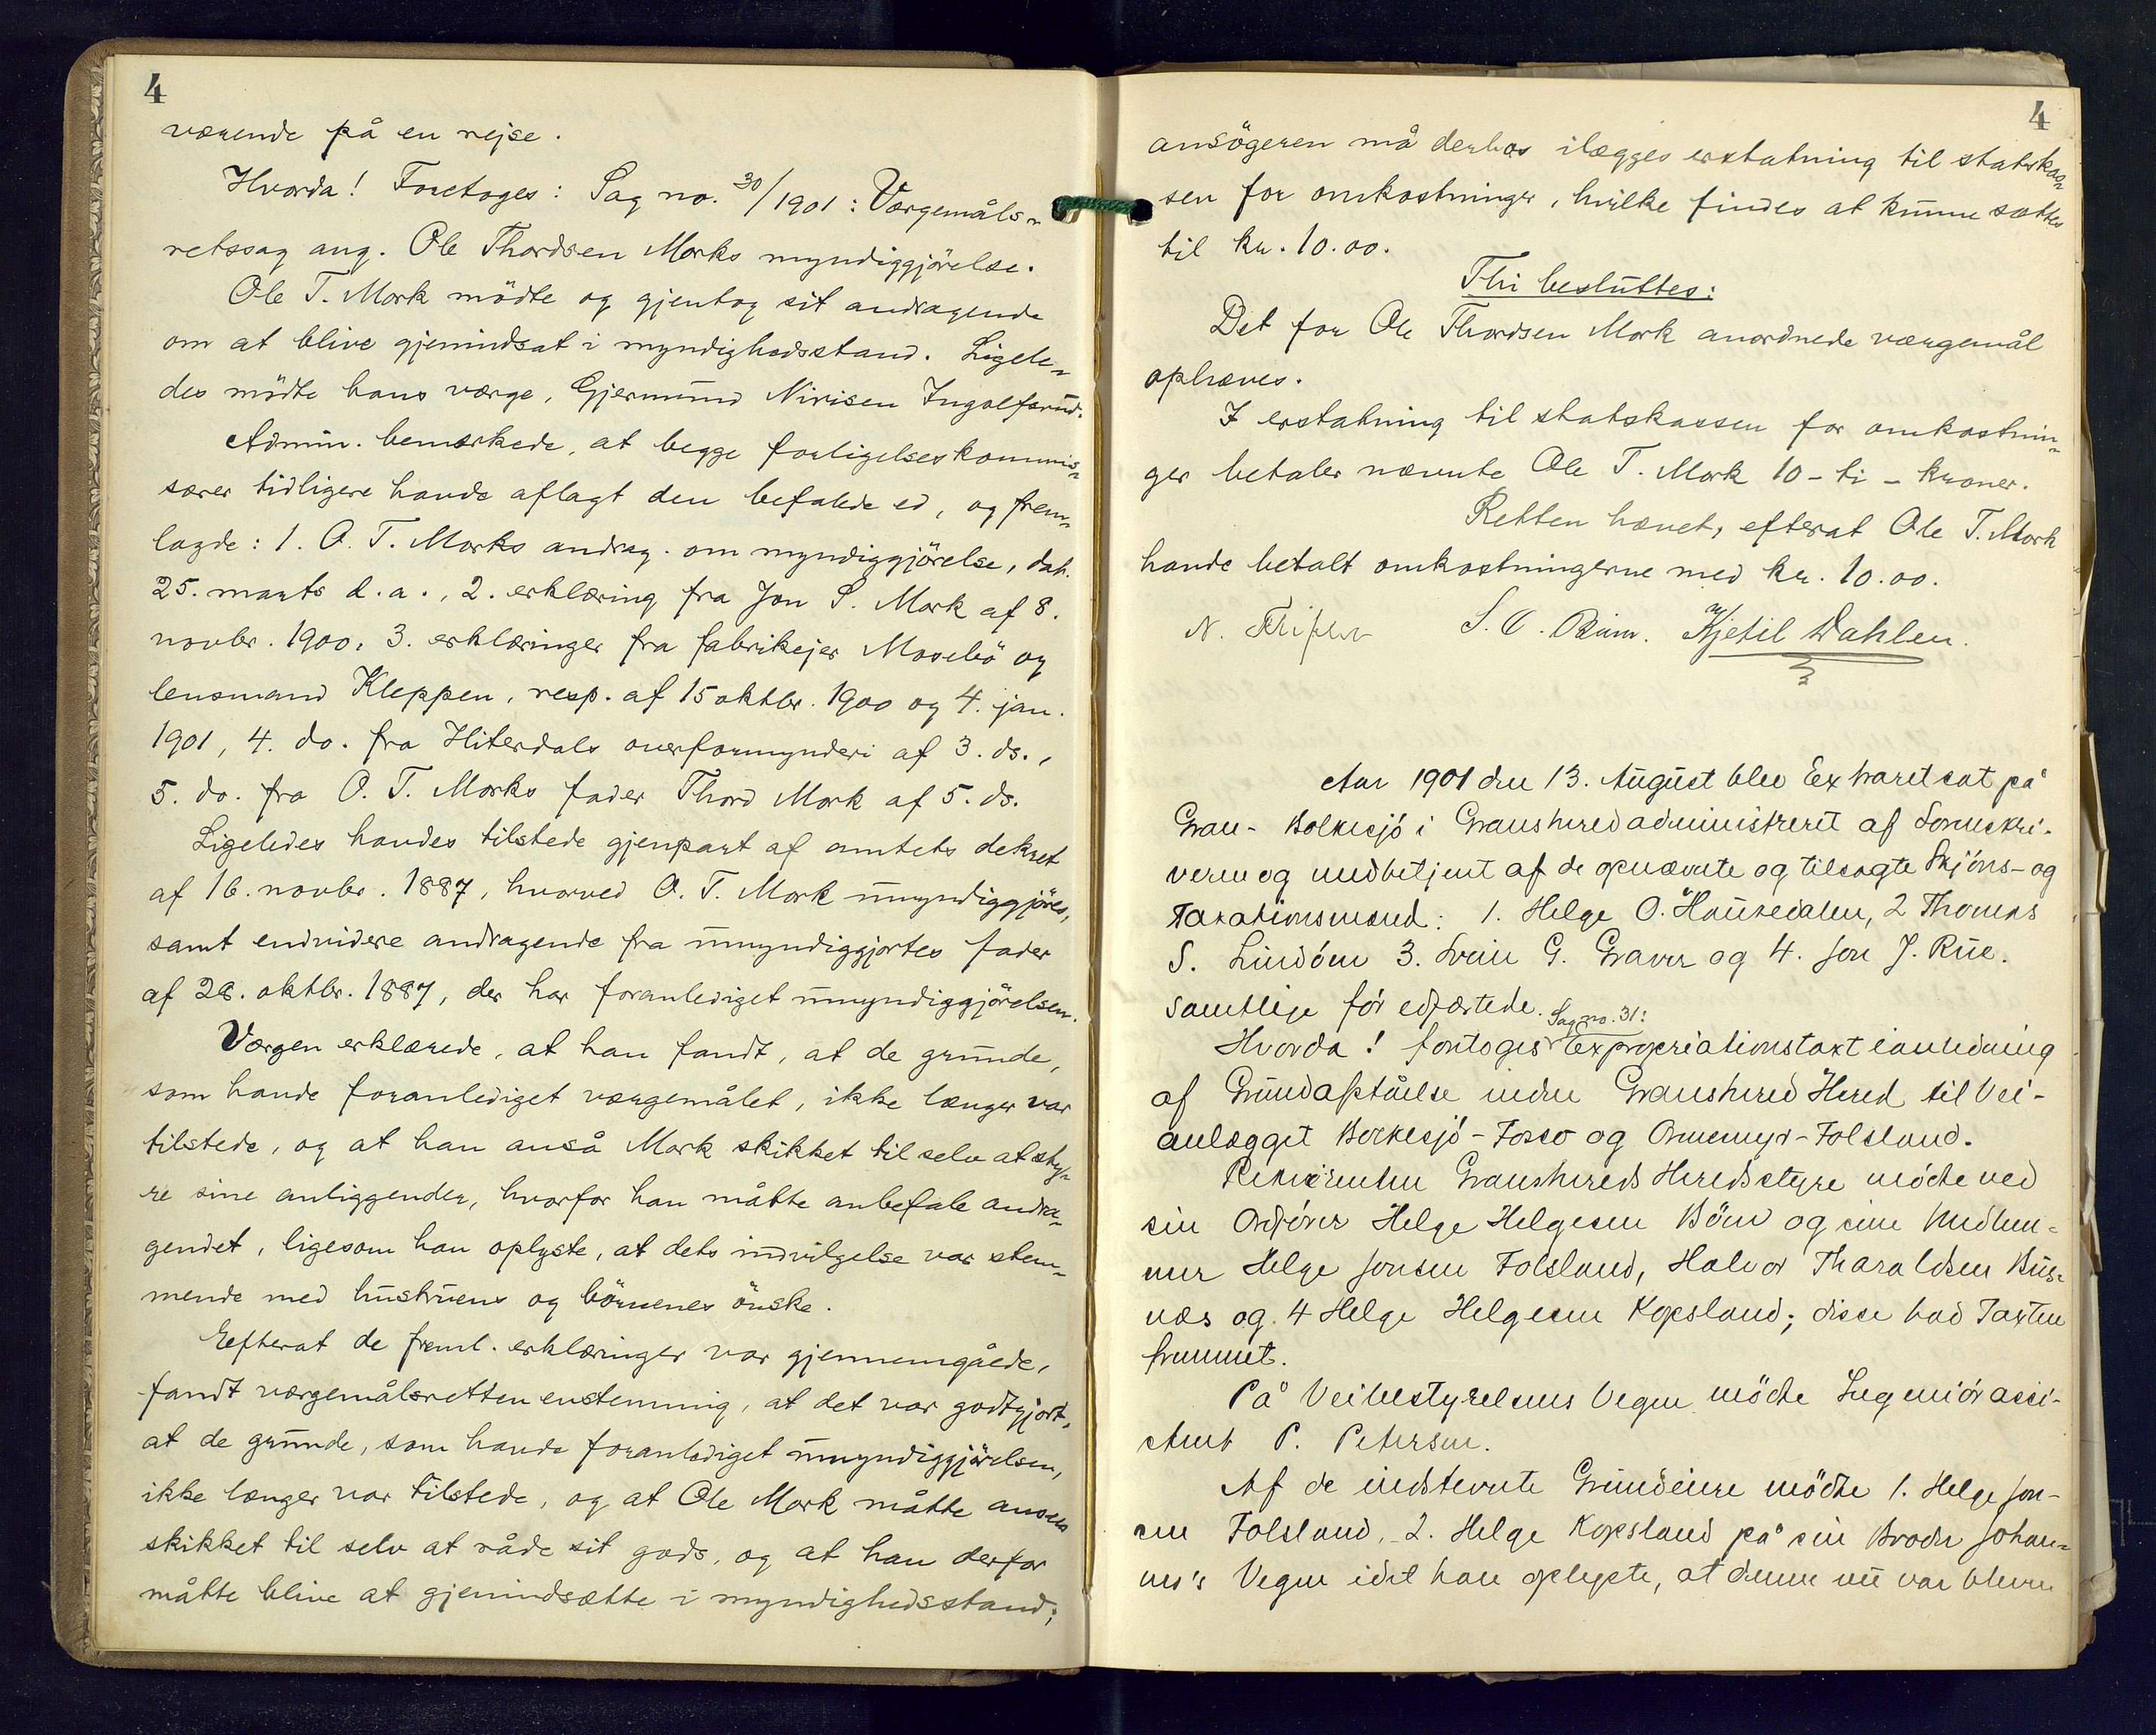 4
værende på en rejse.
Hvorda! Foretoges: Sag no. 30/1901: Værgemåls-
retssag ang. Ole Thordsen Morks myndiggjörelse.
Ole T. Mork mödte og gjentog sit andragende
om at blive gjenindsat i myndighedsstand. Ligele-
des mödte hans værge, Gjermund Nirisen Ingolfsrud.
Admin. bemærkede, at begge forligelseskommis-
særer tidligere havde aflagt den befalede ed, og frem-
lagde: 1. O. T. Morks andrag. om myndiggjörelse, dat.
25. marts d. a., 2. erklæring fra Jon S. Mork af 8.
novbr. 1900, 3. erklæringer fra fabrikejer Mosebö og
lensmand Kleppen, resp. af 15 oktbr. 1900 og 4. jan.
1901, 4. do. fra Hiterdals overformynderi af 3. ds.,
5. do. fra O. T. Morks fader Thord Mork af 5. ds.
Ligeledes havdes tilstede gjenpart af amtets dekret
af 16. novbr. 1887, hvorved O. T. Mork umyndiggjöres,
samt endvidere andragende fra umyndiggjortes fader
af 28. oktbr. 1887, der har foranlediget umyndiggjörelsen.
Værgen erklærede, at han fandt, at de grunde,
som havde foranlediget værgemålet, ikke længer var
tilstede, og at han anså Mork skikket til selv at sty-
re sine anliggender, hvorfor han måtte anbefale andra-
gendet, ligesom han oplyste, at dets indvilgelse var stem-
mende med hustruens og börnenes önske.
Eefterat de freml. erklæringer var gjennemgåede,
fandt værgemålsretten enstemmig, at det var godtgjort,
at de grunde, som havde foranlediget umyndiggjörelsen,
ikke længer var tilstede, og at Ole Mork måtte ansees
skikket til selv at råde sit gods, og at han derfor
måtte blive at gjenindsætte i myndighedsstand;
4
ansögeren må derhos ilægges erstatning til statskas-
sen for omkostninger, hvilke findes at kunne sættes
til kr. 10.00.
Thi besluttes:
Det for Ole Thordsen Mork anordnede værgemål
ophæves.
I erstatning til statskassen for omkostnin-
ger betaler nævnte Ole T. Mork 10 - ti - kroner.
Retten hævet, efterat Ole T. Mork
havde betalt omkostningerne med kr. 10.00.
N. S. O. Kjetil Dahlen.
Aar 1901 den 13. August blev Ex traret sat på
Gran- Bolkesjö i Gransherred administreret af Sorenskri-
veren og medbetjent af de opnævnte og tilsagte Skjöns- og
Taxationsmænd: 1. Helge O. Haukedalen, 2 Thomas
S. Lindöm 3. Svein G. Graver og 4. Jon J. Rue.
samtlige för edfæstede.
Sag no. 31:
Hvorda! foretoges Expropriationstaxt i anledning
af Grundafståelse inden Gransherred Herred til Vei-
anlægget Bolkesjö - Fosso og Ormemyr - Folsland.
Rekvirenten Gransherreds Herredsstyre mödte ved
sin Ordförer Helge Helgesen Böen og sine Medlem-
mer Helge Jonsen Folsland, Halvor Tharaldsen Bus-
næs og 4 Helge Helgesen Kopsland; disse bad Taxten
fremmet.
På Veibestyrelsens Vegne mödte Ingeniörassi-
stent P. Petersen.
Af de indstevnte Grundeiere mödte 1. Helge Jon-
sen Folsland, 2. Helge Kopsland på sin Broder Johan-
nes's Vegne idet han oplyste, at denne nu var bleven